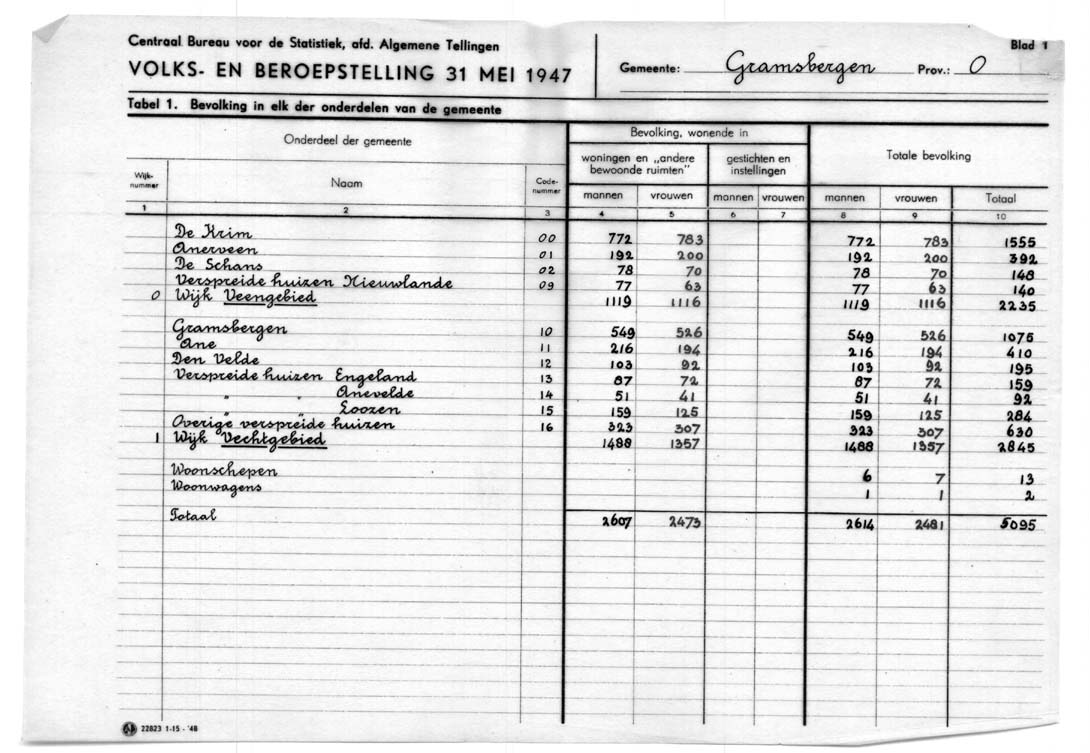 Centraal Bureau voor de Statistiek, afd. Algemene Tellingen
VOLKS- EN BEROEPSTELLING 31 MEI 1947
Gemeente: Gramsbergen Prov.: O
Blad 1
Tabel 1. Bevolking in elk der onderdelen van de gemeente
Onderdeel der gemeente
Bevolking, wonende in
woningen en „andere bewoonde ruimten”
gestichten en instellingen
Totale bevolking
Wijk-nummer Naam Code-nummer mannen vrouwen mannen vrouwen mannen vrouwen Totaal
1 2 3 4 5 6 7 8 9 10
De Krim 00 772 783 772 783 1555
Anerveen 01 192 200 192 200 392
De Schans 02 78 70 78 70 148
Verspreide huizen Nieuwlande 09 77 63 77 63 140
0 Wijk Veengebied 1119 1116 1119 1116 2235
Gramsbergen 10 549 526 549 526 1075
Ane 11 216 194 216 194 410
Den Velde 12 103 92 103 92 195
Verspreide huizen Engeland 13 87 72 87 72 159
„ „ Anevelde 14 51 41 51 41 92
„ „ Loozen 15 159 125 159 125 284
Overige verspreide huizen 16 323 307 323 307 630
1 Wijk Vechtgebied 1488 1357 1488 1357 2845
Woonschepen 6 7 13
Woonwagens 1 1 2
Totaal 2607 2473 2614 2481 5095
22823 1-15 - '48